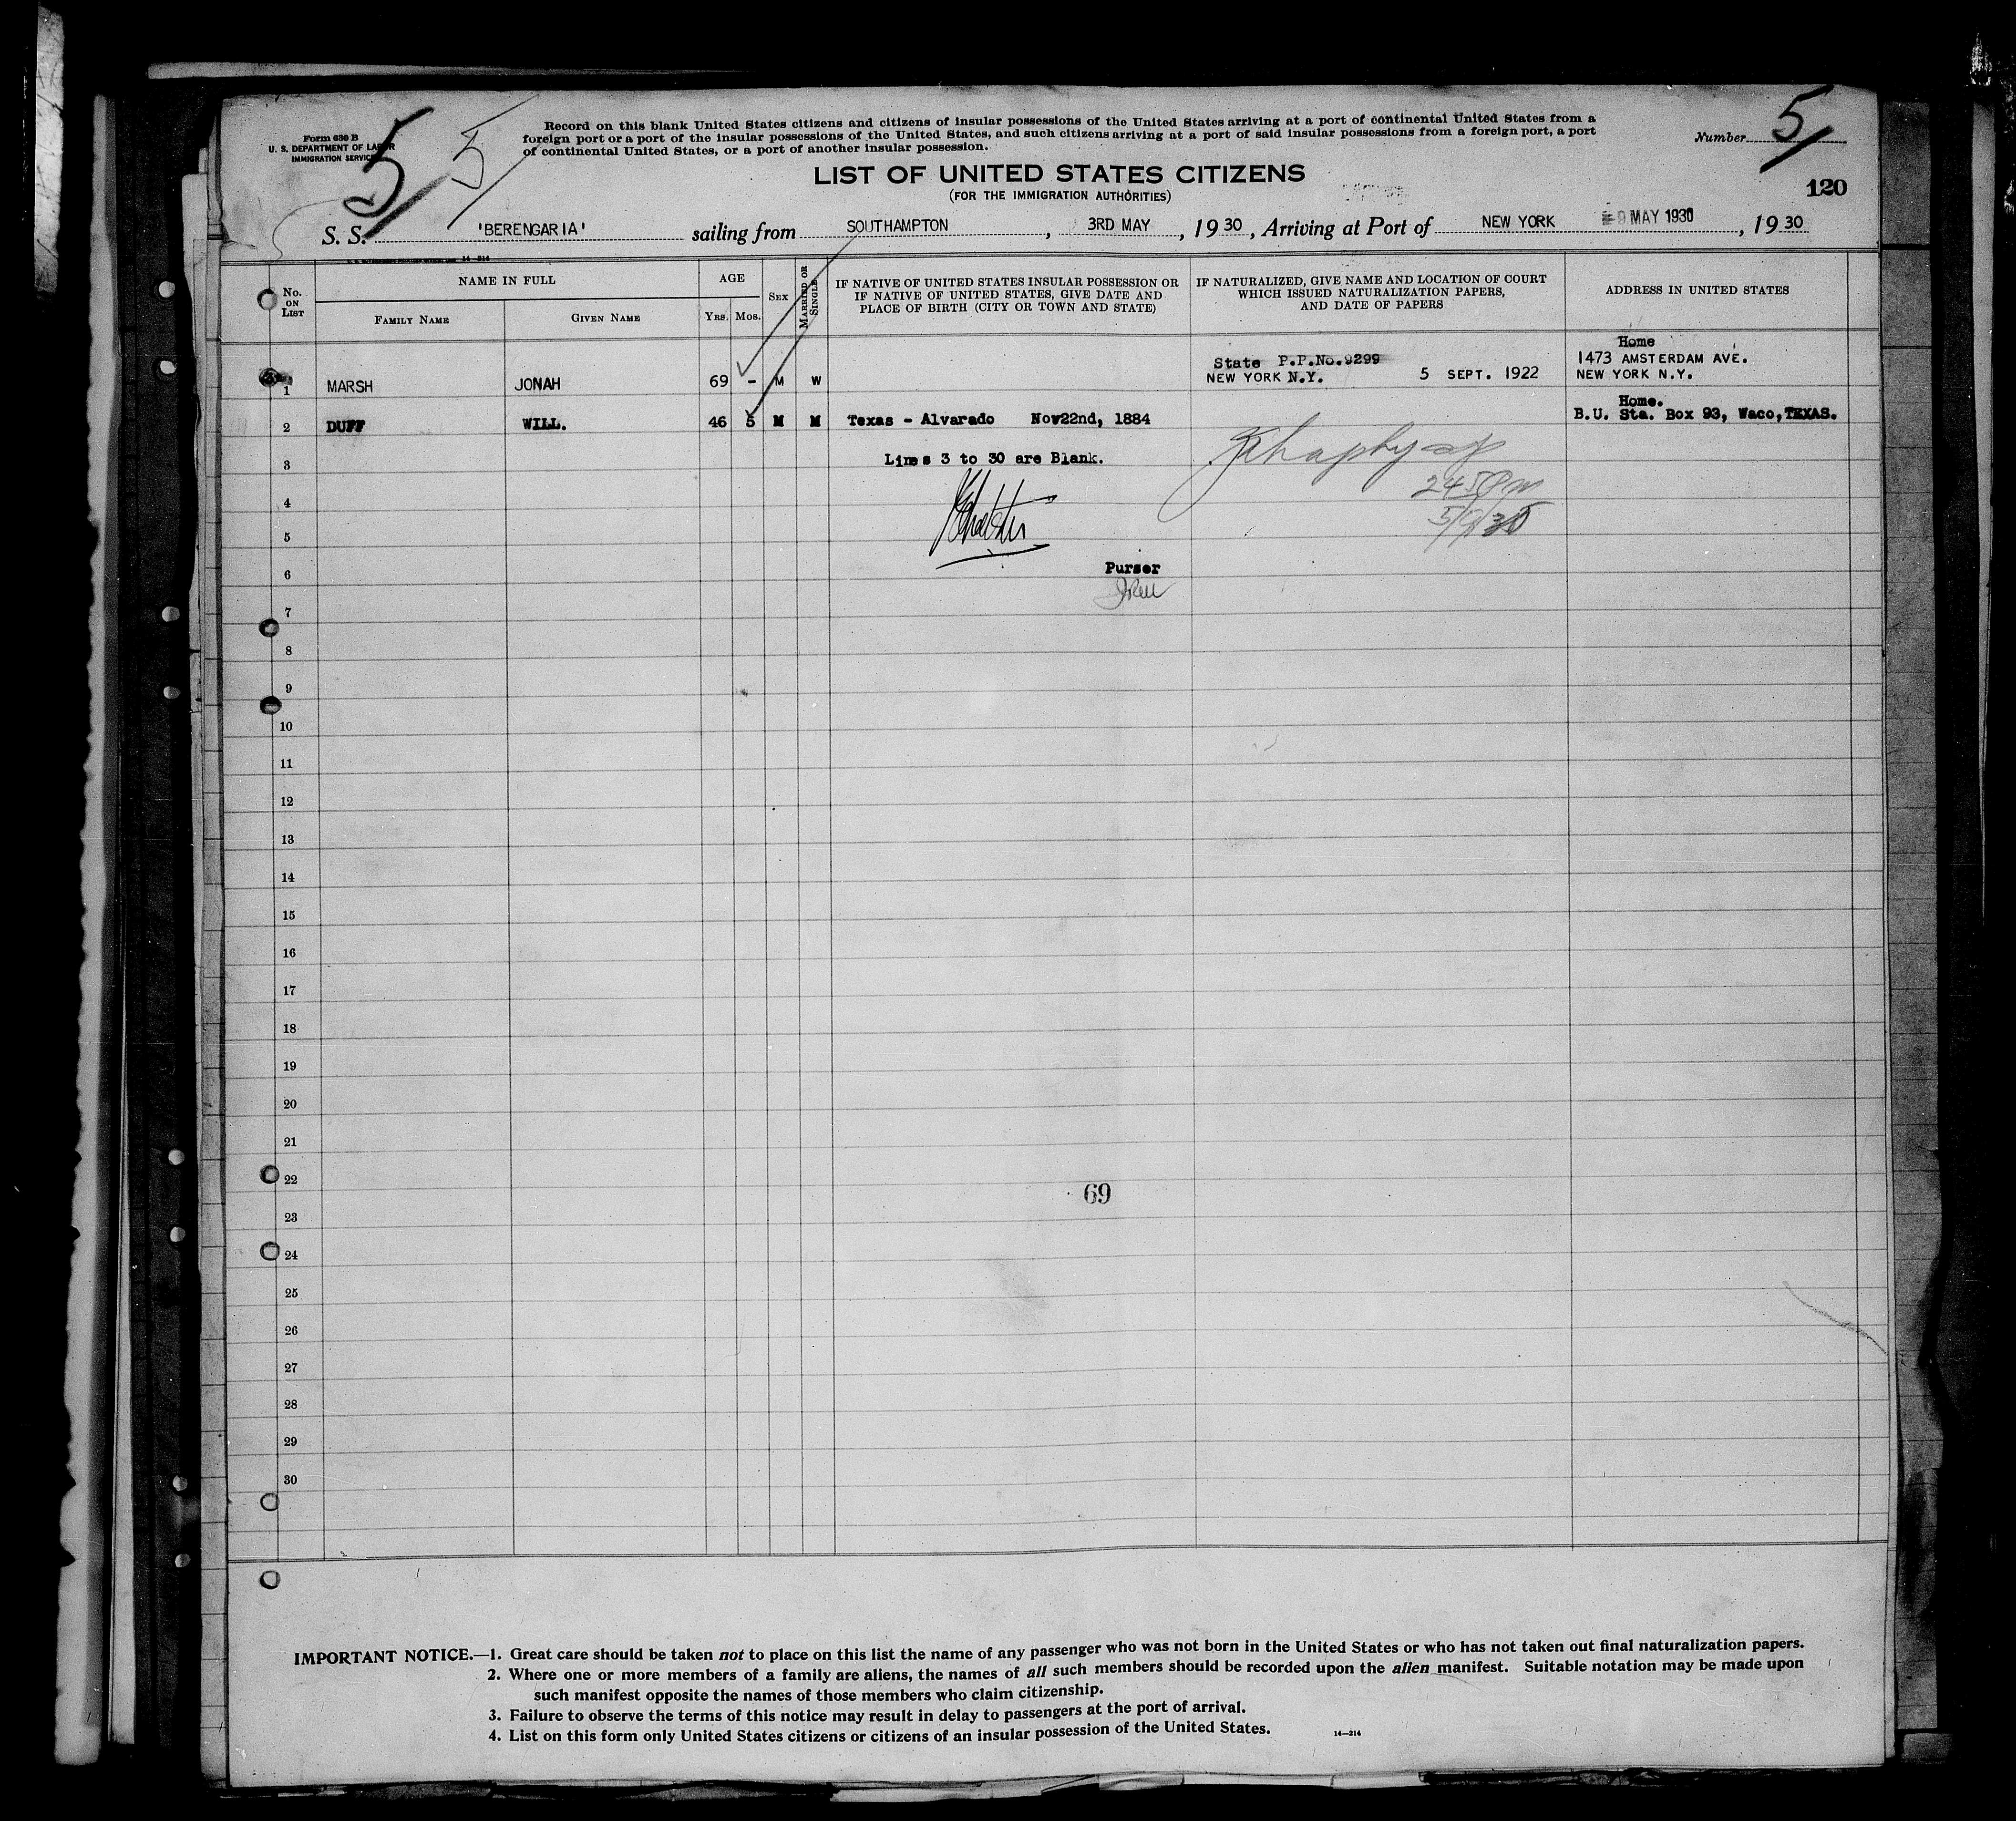 Form 630 B
U. S. DEPARTMENT OF LABOR
IMMIGRATION SERVICE
5
5
Record on this blank United States citizens and citizens of insular possessions of the United States arriving at a port of continental United States from a
foreign port or a port of the insular possessions of the United States, and such citizens arriving at a port of said insular possessions from a foreign port, a port
of continental United States, or a port of another insular possession.
Number 5
LIST OF UNITED STATES CITIZENS
(FOR THE IMMIGRATION AUTHORITIES)
120
S. S. 'BERENGARIA' sailing from SOUTHAMPTON, 3RD MAY, 1930, Arriving at Port of NEW YORK 9 MAY 1930, 1930
14-214
No. ON LIST NAME IN FULL AGE SEX MARRIED OR SINGLE IF NATIVE OF UNITED STATES INSULAR POSSESSION OR IF NATIVE OF UNITED STATES, GIVE DATE AND PLACE OF BIRTH (CITY OR TOWN AND STATE) IF NATURALIZED, GIVE NAME AND LOCATION OF COURT WHICH ISSUED NATURALIZATION PAPERS, AND DATE OF PAPERS ADDRESS IN UNITED STATES
FAMILY NAME GIVEN NAME YRS. MOS.
Home
State P.P.No.9299 1473 AMSTERDAM AVE.
1 MARSH JONAH 69 - M W NEW YORK N.Y. 5 SEPT. 1922 NEW YORK N.Y.
Home.
2 DUFF WILL. 46 5 M M Texas - Alvarado Nov22nd, 1884 B.U. Sta. Box 93, Waco,TEXAS.
3 Lines 3 to 30 are Blank.
4 245 Pm
5 5/9/30
6 Purser
7
8
9
10
11
12
13
14
15
16
17
18
19
20
21
22 69
23
24
25
26
27
28
29
30
IMPORTANT NOTICE.—1. Great care should be taken not to place on this list the name of any passenger who was not born in the United States or who has not taken out final naturalization papers.
2. Where one or more members of a family are aliens, the names of all such members should be recorded upon the alien manifest. Suitable notation may be made upon
such manifest opposite the names of those members who claim citizenship.
3. Failure to observe the terms of this notice may result in delay to passengers at the port of arrival.
4. List on this form only United States citizens or citizens of an insular possession of the United States. 14—214